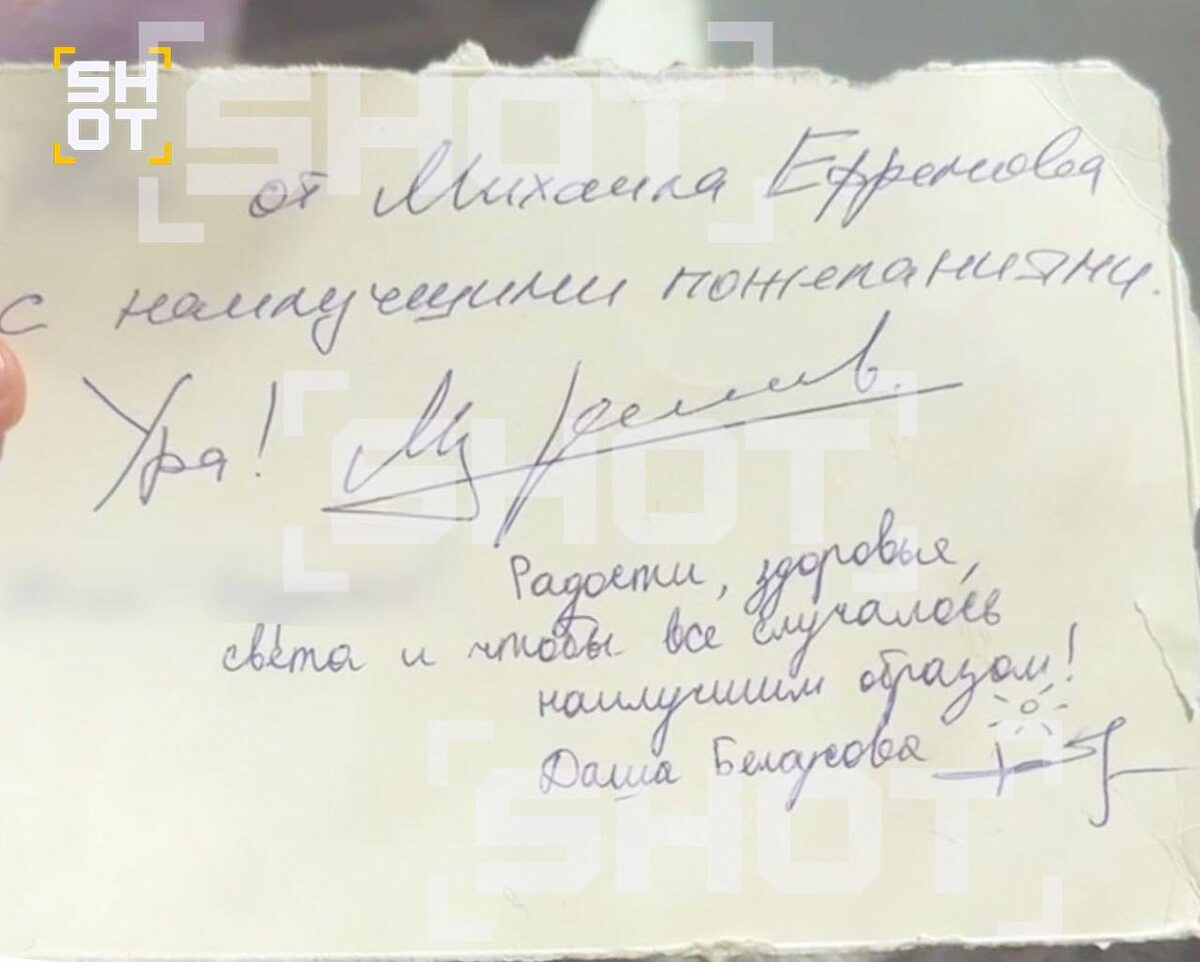 SHOT
SH
OT
от Михаила Ефремова
с наилучшими пожеланиями.
Ура!
Радости, здоровья,
света и чтобы все случалось
наилучшим образом!
Даша Белоусова
SHOT
SHOT